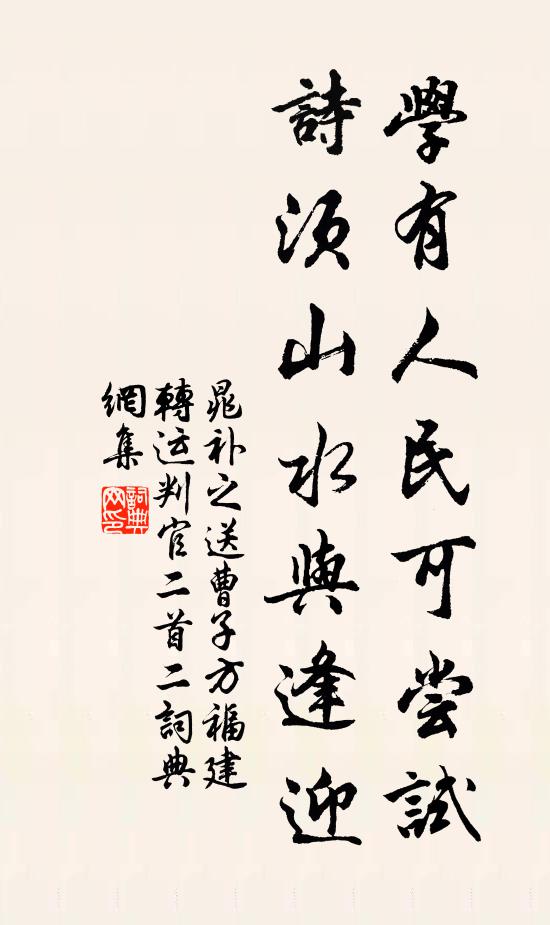 學有人民可尝試
詩須山水與逢迎
晁补之送曹子方福建
轉运判官二首二詞典
網集
詞典网印